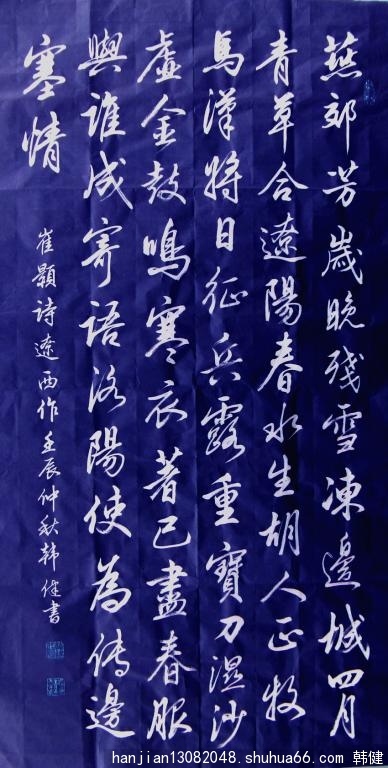 燕郊芳歲晚殘雪凍邊城四月
青草合遼陽春水生胡人正牧
馬漢將日征兵露重寶刀濕沙
虛金鼓鳴寒衣著已盡春服
與誰成寄語洛陽使為傳邊
塞情
崔顥詩遼西作壬辰仲秋韩健書
hanjian13082048.shuhua66.com 韩健